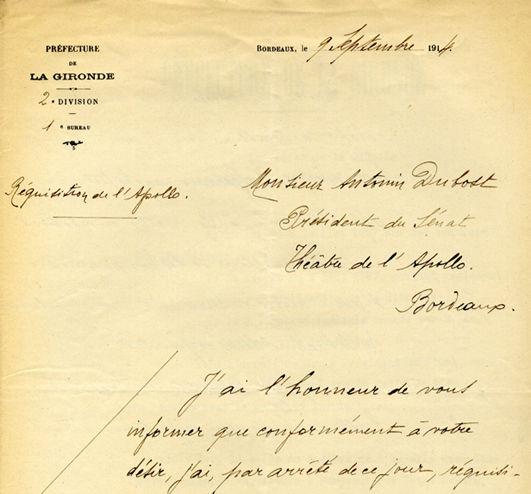 PRÉFECTURE
DE
LA GIRONDE
2e DIVISION
1e BUREAU
BORDEAUX, le 9 Septembre 1914.
Réquisition de l'Apollo.
Monsieur Antonin Dubost
Président du Sénat
Théâtre de l'Apollo.
Bordeaux.
J'ai l'honneur de vous
informer que conformément à votre
désir, j'ai, par arrêté de ce jour, réquisi-